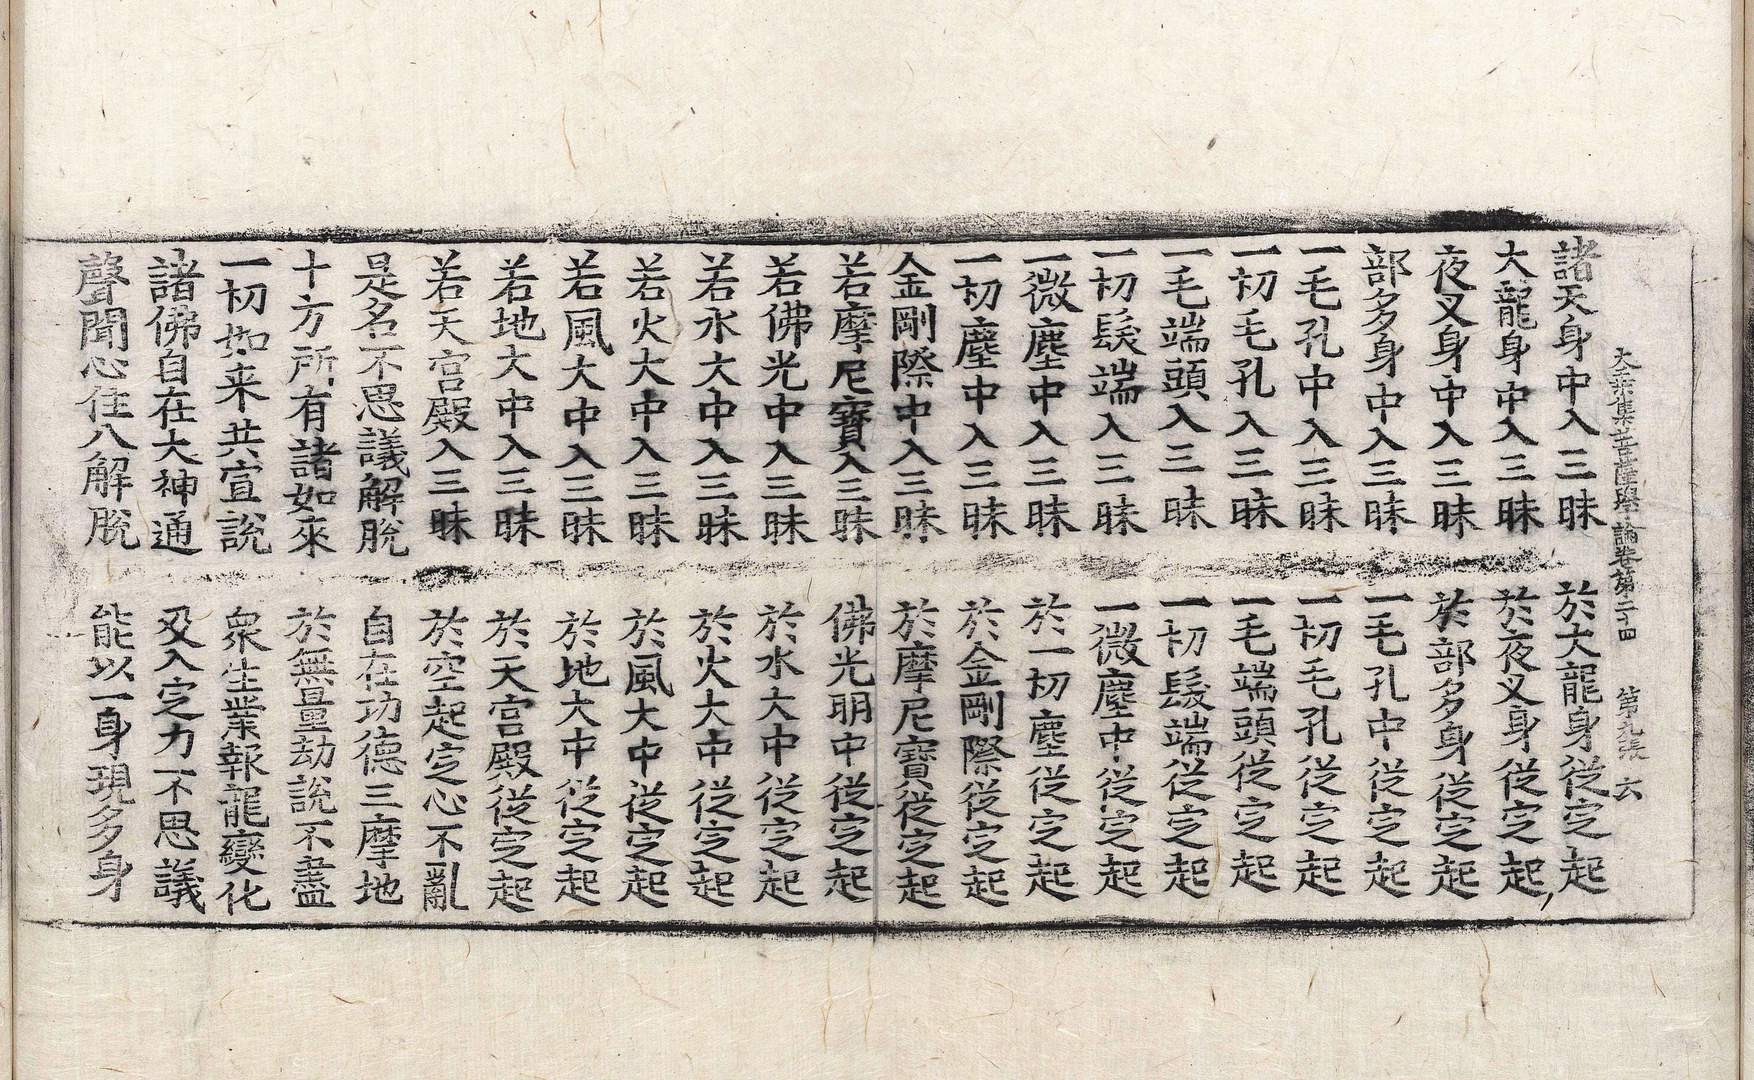 大乘集菩薩學論卷第二十四　第九張　六
諸天身中入三昧　於大龍身從定起
大龍身中入三昧　於夜叉身從定起
夜叉身中入三昧　於部多身從定起
部多身中入三昧　一毛孔中從定起
一毛孔中入三昧　一切毛孔從定起
一切毛孔入三昧　一毛端頭從定起
一毛端頭入三昧　一切髮端從定起
一切髮端入三昧　一微塵中從定起
一微塵中入三昧　於一切塵從定起
一切塵中入三昧　於金剛際從定起
金剛際中入三昧　於摩尼寶從定起
若摩尼寶入三昧　佛光明中從定起
若佛光中入三昧　於水大中從定起
若水大中入三昧　於火大中從定起
若火大中入三昧　於風大中從定起
若風大中入三昧　於地大中從定起
若地大中入三昧　於天宮殿從定起
若天宮殿入三昧　於空起定心不亂
是名不思議解脫　自在功德三摩地
十方所有諸如來　於無量劫說不盡
一切如来共宣說　衆生業報龍變化
諸佛自在大神通　及入定力不思議
聲聞心住八解脫　能以一身現多身